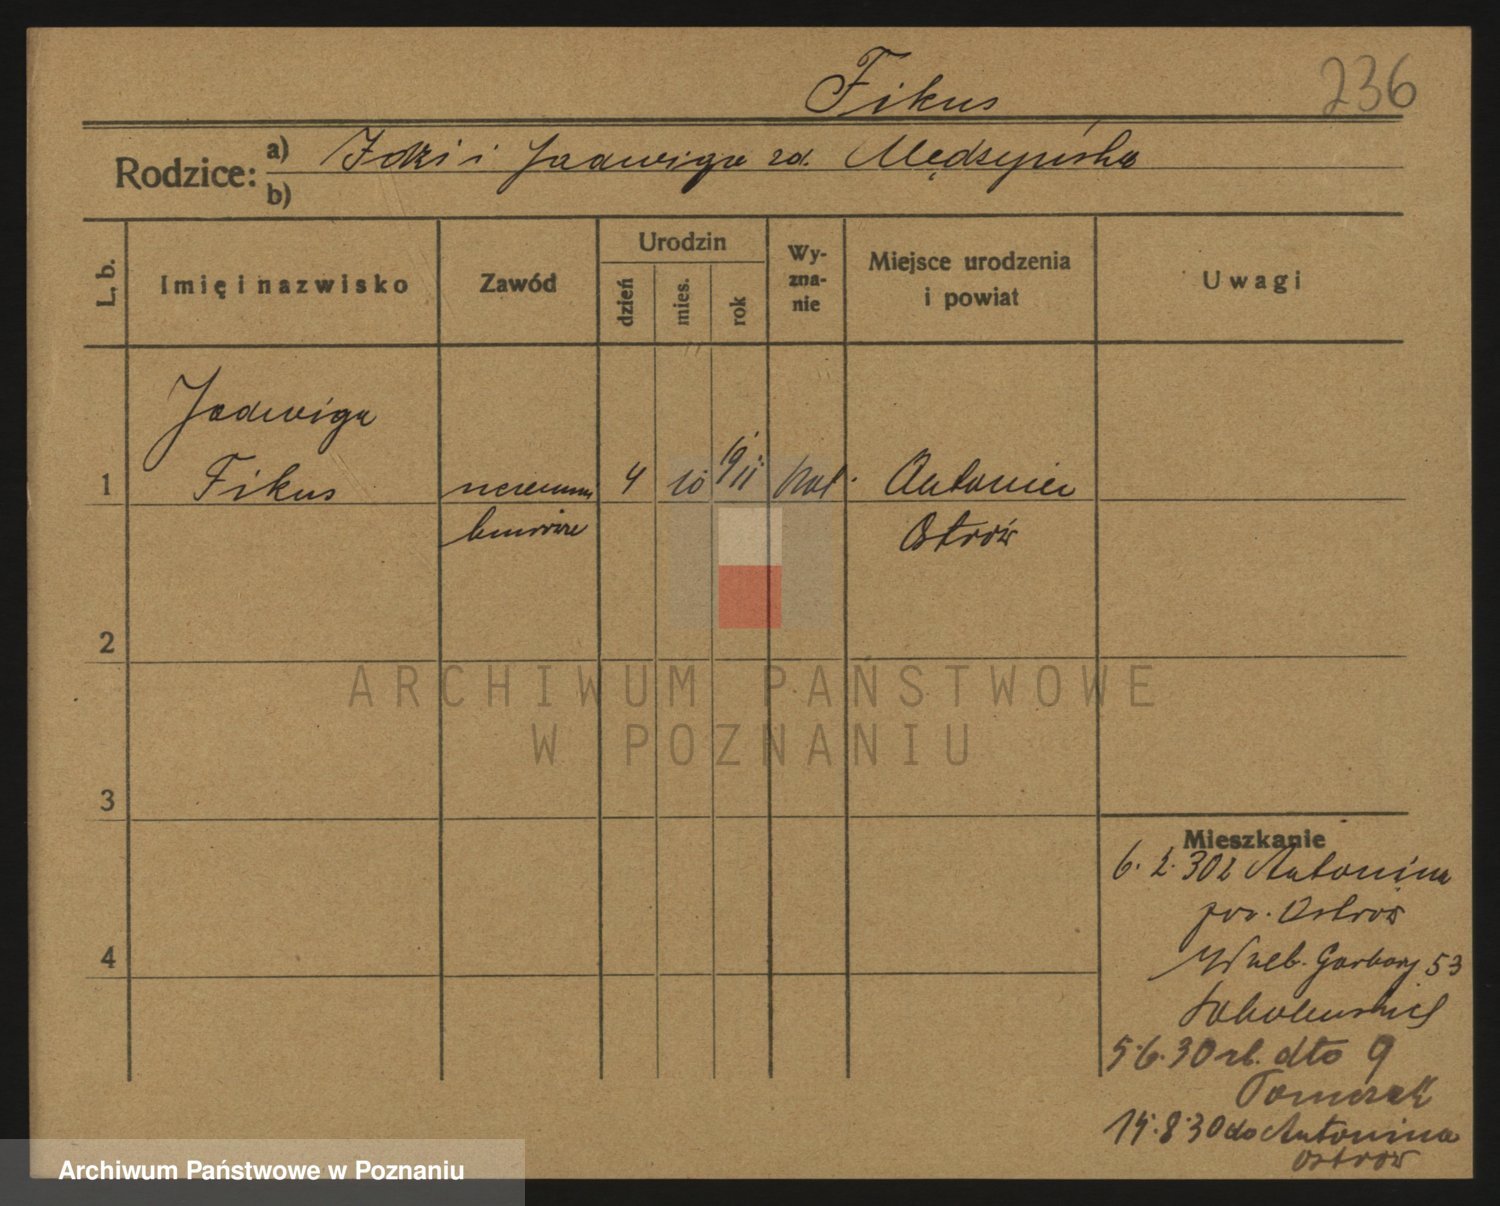 Fikus
236
Rodzice:
a) Idzi i Jadwiga zd. Mędszyńska
b)
L. b.
Imię i nazwisko
Zawód
Urodzin
dzień
mies.
rok
Wy-
zna-
nie
Miejsce urodzenia
i powiat
Uwagi
Jadwiga
1 Fikus 4 10 1911 kat. Antonin
Ostrów
2
ARCHIWUM PAŃSTWOWE
W POZNANIU
3
4
Mieszkanie
6.2.30 z Antonina
pow. Ostrów
Garbary 53
5.6.30 dto 9
Tomczak
15.8.30 do Antonina
Ostrów
Archiwum Państwowe w Poznaniu